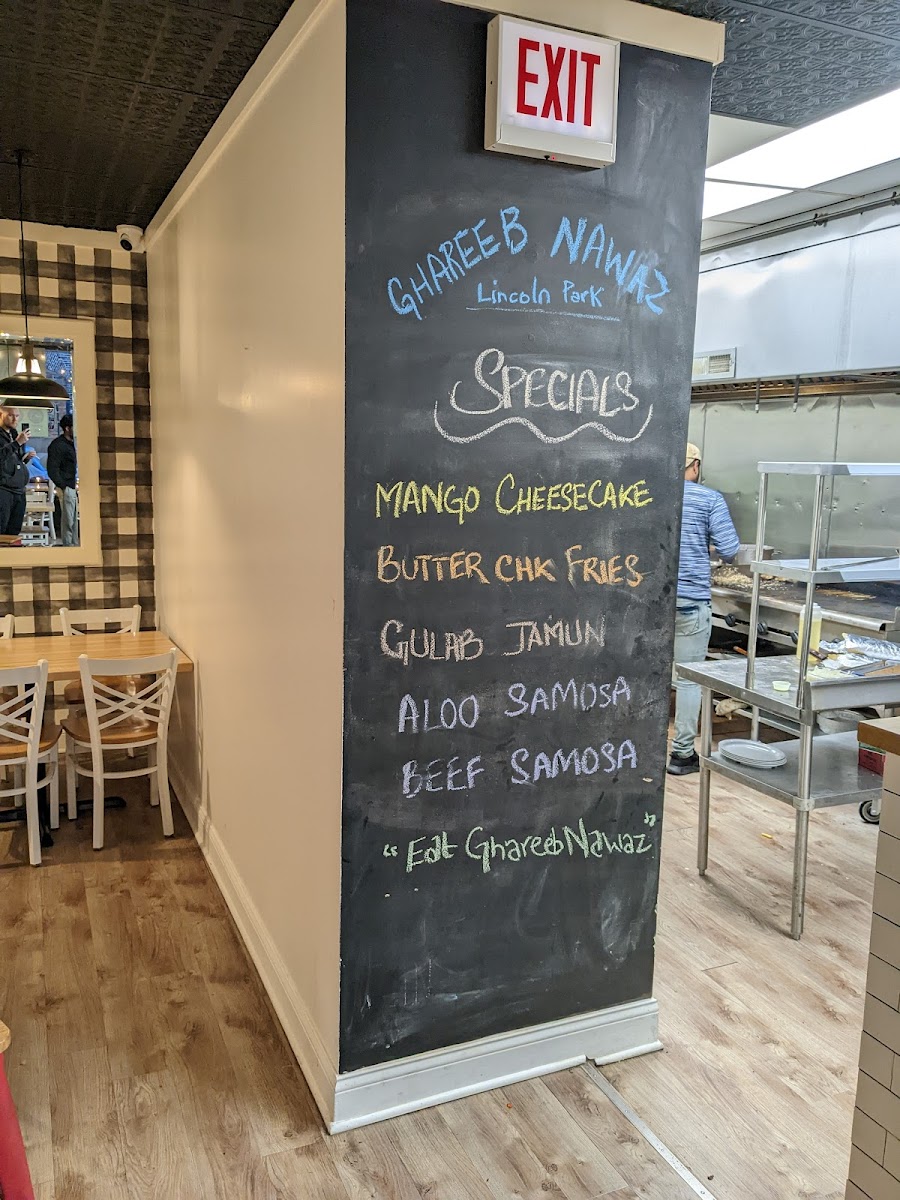 EXIT
GHAREEB NAWAZ
Lincoln Park
SPECIALS
MANGO CHEESECAKE
BUTTER CHK FRIES
GULAB JAMUN
ALOO SAMOSA
BEEF SAMOSA
"Eat GhareebNawaz"